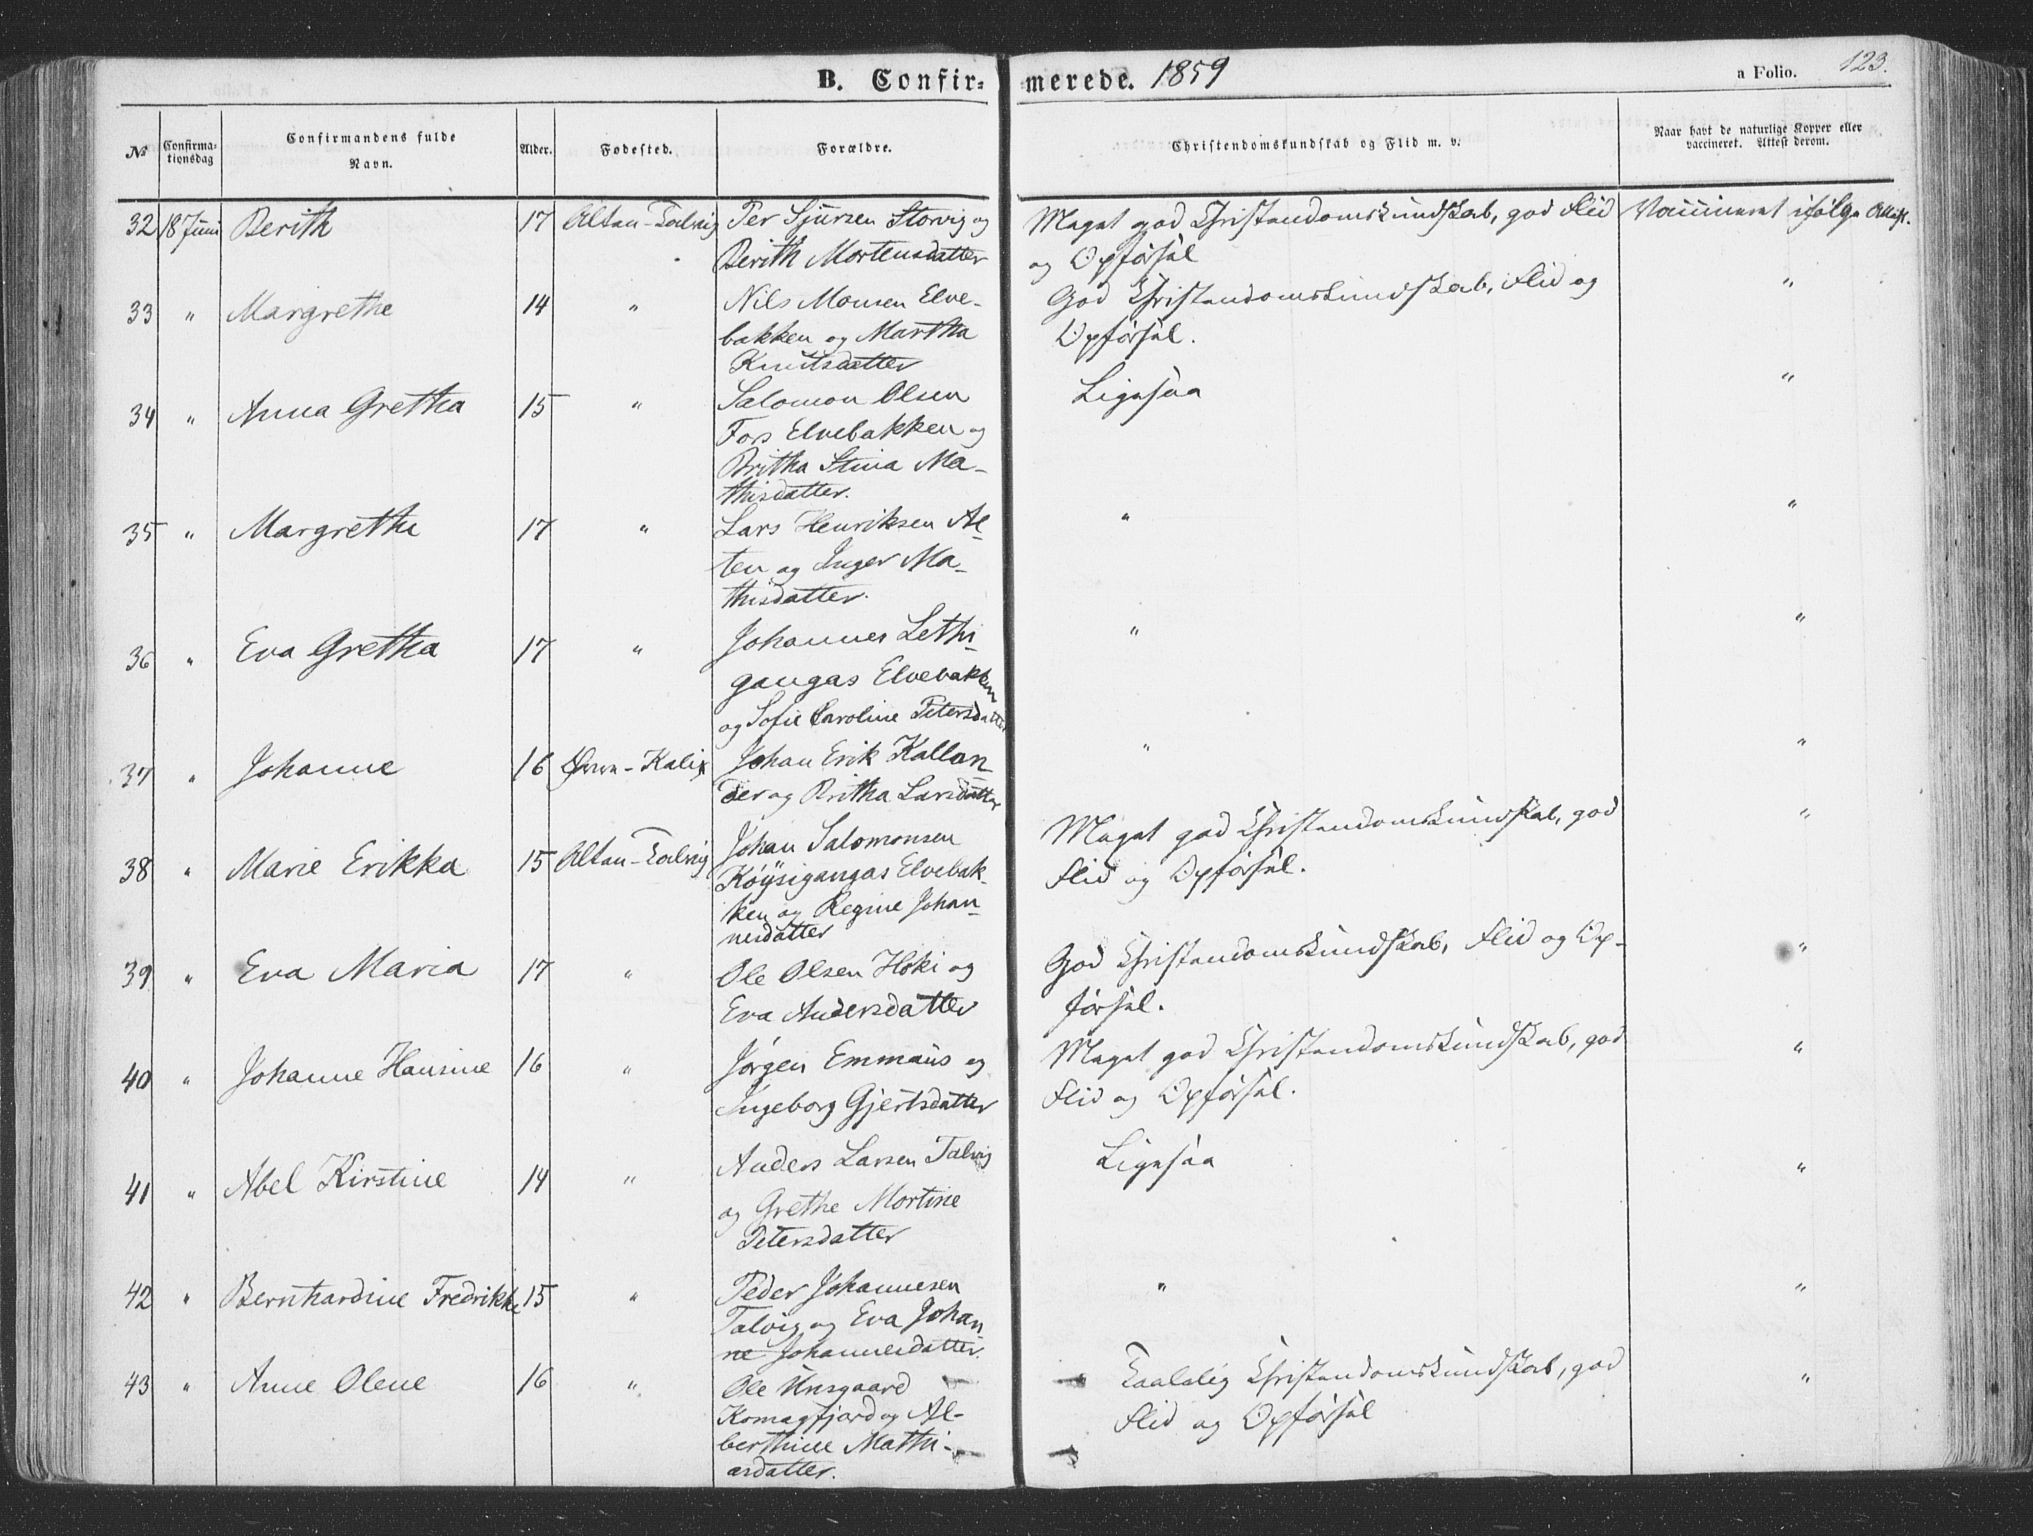 B. Confirmerede. 1859 a Folio. 123.
No Confirmationsdag Confirmandens fulde Navn. Alder. Fødested. Forældre. Christendomskundskab og Flid m. v. Naar havt de naturlige Kopper eller vaccineret. Attest derom.
32 18 Juni Berith 17 Alten-Talvig Per Sjursen Storvig og Meget god Christendomskundskab, god Flid Vaccineret ifølge Attest.
Berith Mortensdatter og Opførsel
33 " Margrethe 14 " Nils Monsen Elve- God Christendomskundskab, Flid og "
bakken og Martha Opførsel.
Knutsdatter
34 " Anna Gretha 15 " Salomon Olsen Ligesaa "
Fors Elvebakken og
Britha Stina Ma-
thisdatter.
35 " Margrethe 17 " Lars Henriksen Al- " "
ten og Inger Ma-
thisdatter.
36 " Eva Gretha 17 " Johannes Lethi- " "
gangas Elvebakken
og Sofie Caroline Petersdatter
37 " Johanne 16 Øvre-Kalix Johan Erik Kallan- " "
der og Britha Larsdatter
38 " Marie Erikka 15 Alten-Talvig Johan Salomonsen Meget god Christendomskundskab, god "
Köysigangas Elvebak- Flid og Opførsel.
ken og Regine Johan-
nesdatter
39 " Eva Maria 17 " Ole Olsen Hoki og God Christendomskundskab, Flid og Op- "
Eva Andersdatter førsel.
40 " Johanne Hansine 16 " Jørgen Emmaus og Meget god Christendomskundskab, god "
Ingeborg Gjertsdatter Flid og Opførsel.
41 " Abel Kirstine 14 " Anders Larsen Talvig Ligesaa "
og Grethe Mortine
Petersdatter
42 " Bernhardine Fredrikke 15 " Peder Johannesen " "
Talvig og Eva Johan
ne Johannesdatter.
43 " Anne Olene 16 " Ole Unsgaard Taalelig Christendomskundskab, god "
Komagfjord og Al- Flid og Opførsel
berthine Mathi-
asdatter.